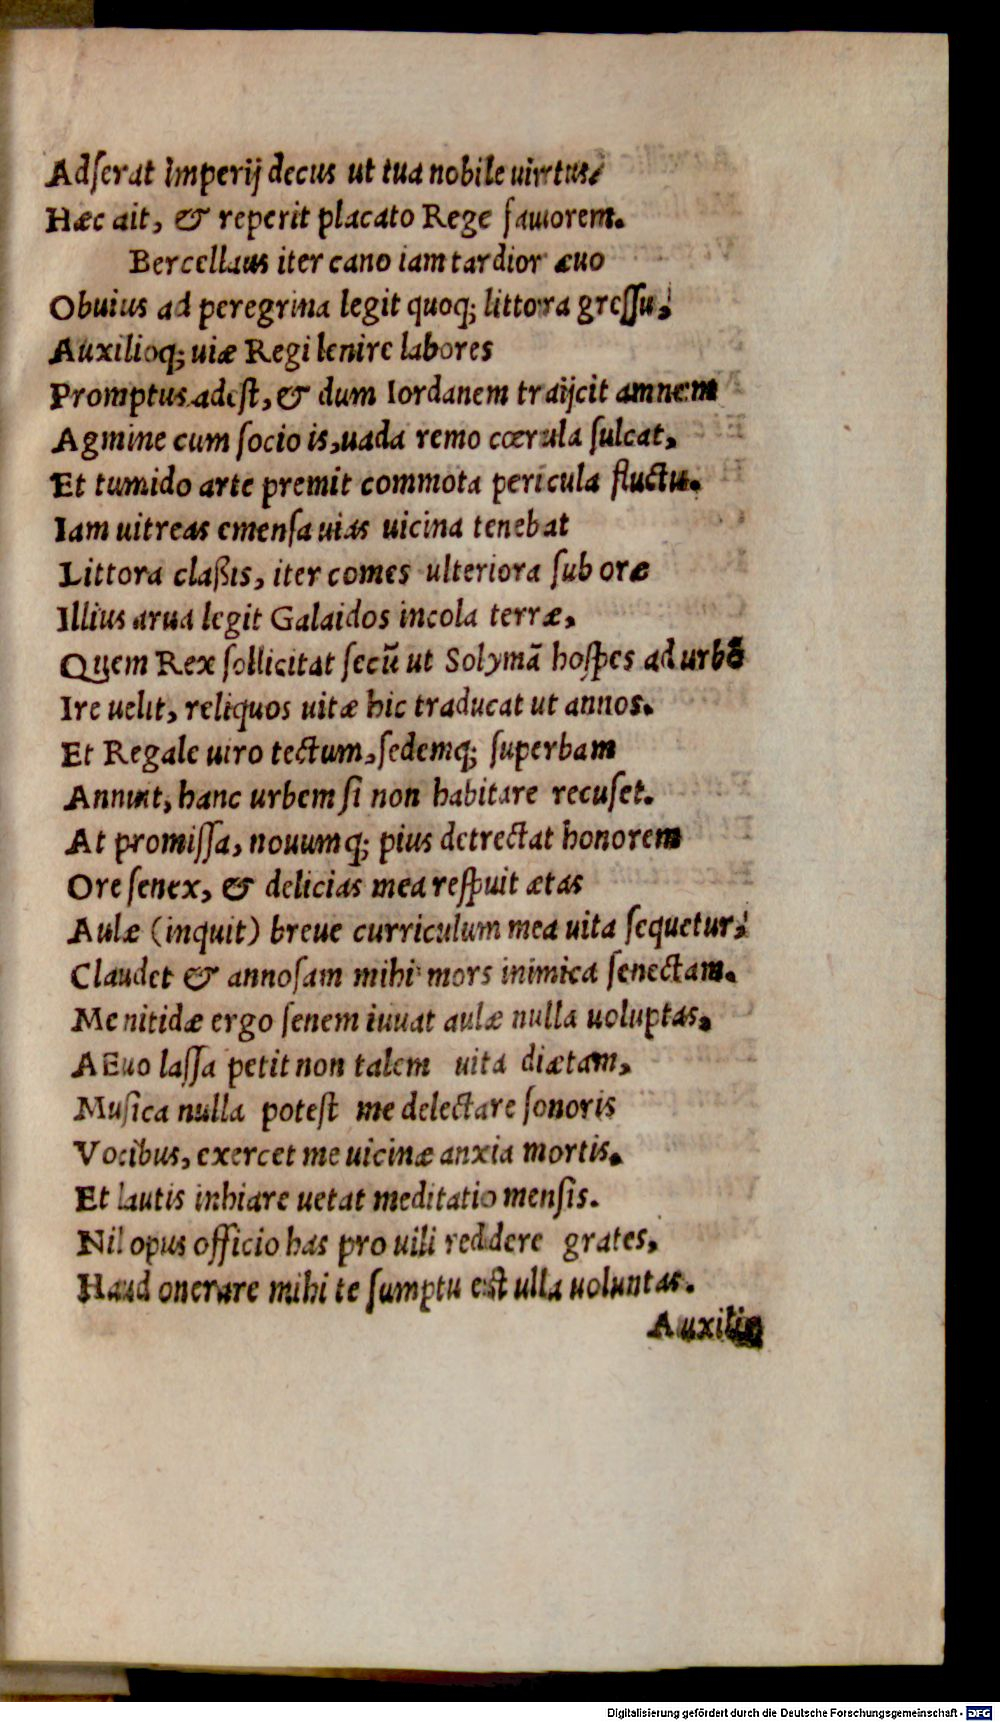 Adſerat Imperij decus ut tua nobile uirtus,
Hæc ait, & reperit placato Rege fauorem.
Bercellaus iter cano iam tardior æuo
Obuius ad peregrina legit quoq; littora greſſu,
Auxilioq; uiæ Regi lenire labores
Promptus adeſt, & dum Iordanem traijcit amnem
Agmine cum ſocio is, uada remo cœrula ſulcat,
Et tumido arte premit commota pericula fluctu.
Iam uitreas emenſa uias uicina tenebat
Littora claßis, iter comes ulteriora ſub oræ
Illius arua legit Galaidos incola terræ,
Quem Rex ſollicitat ſecū ut Solymā hoſpes ad urbē
Ire uelit, reliquos uitæ hic traducat ut annos.
Et Regale uiro tectum, ſedemq; ſuperbam
Annuit, hanc urbem ſi non habitare recuſet.
At promiſſa, nouumq; pius detrectat honorem
Ore ſenex, & delicias mea reſpuit ætas
Aulæ (inquit) breue curriculum mea uita ſequetur,
Claudet & annoſam mihi mors inimica ſenectam.
Me nitidæ ergo ſenem iuuat aulæ nulla uoluptas.
AEuo laſſa petit non talem uita diætam,
Muſica nulla poteſt me delectare ſonoris
Vocibus, exercet me uicinæ anxia mortis.
Et lautis inhiare uetat meditatio menſis.
Nil opus officio has pro uili reddere grates,
Haud onerare mihi te ſumptu eſt ulla uoluntas.
Auxilio
Digitalisierung gefördert durch die Deutsche Forschungsgemeinschaft - DFG